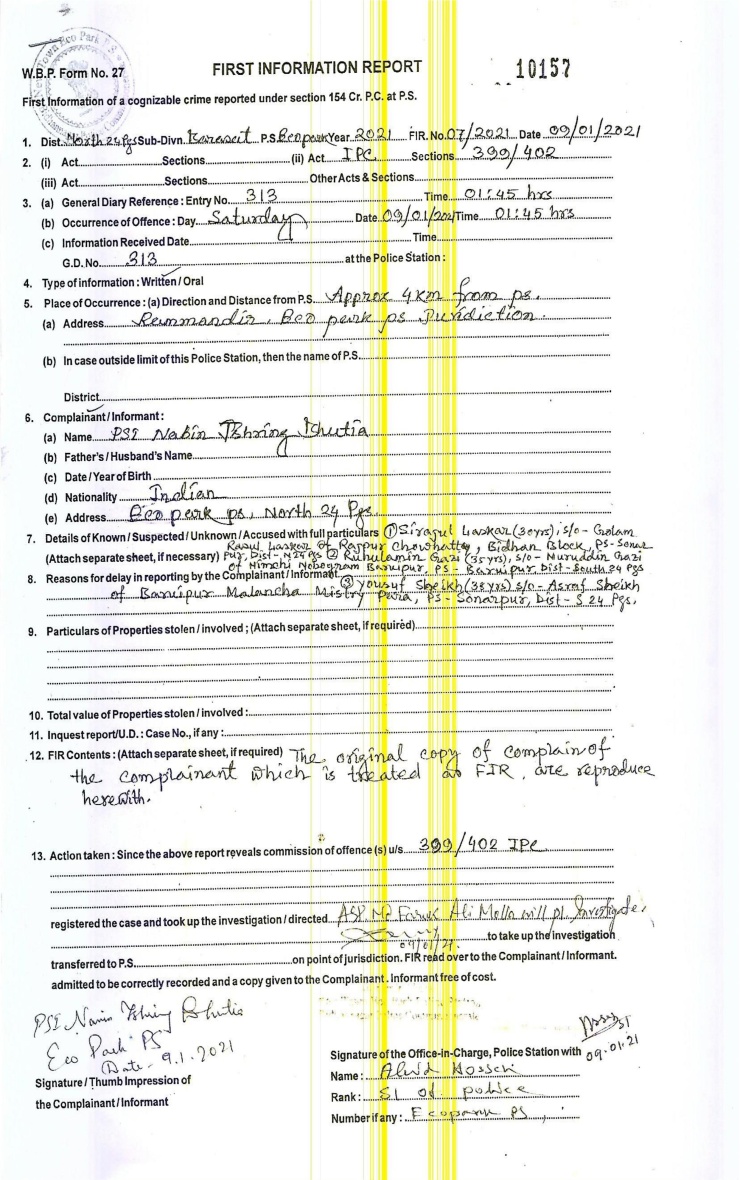 Town Eco Park P.S
W.B.P. Form No. 27
FIRST INFORMATION REPORT
10157
First Information of a cognizable crime reported under section 154 Cr. P.C. at P.S.
1. Dist. North 24 Pgs Sub-Divn. Barasat P.S. Ecopark Year 2021 FIR. No. 07/2021 Date 09/01/2021
2. (i) Act Sections (ii) Act IPC Sections 399/402
(iii) Act Sections Other Acts & Sections
3. (a) General Diary Reference : Entry No. 313 Time 01:45 hrs
(b) Occurrence of Offence : Day Saturday Date 09/01/2021 Time 01:45 hrs
(c) Information Received Date Time
G.D. No. 313 at the Police Station :
4. Type of information : Written / Oral
5. Place of Occurrence : (a) Direction and Distance from P.S. Approx 4 km from ps.
(a) Address Rammandir, Eco park ps Juridiction.
(b) In case outside limit of this Police Station, then the name of P.S.
District
6. Complainant / Informant :
(a) Name PSI Nabin Tshring Bhutia
(b) Father's / Husband's Name
(c) Date / Year of Birth
(d) Nationality Indian
(e) Address Eco park ps, North 24 Pgs.
7. Details of Known / Suspected / Unknown / Accused with full particulars ① Sirajul Laskar (30yrs), s/o - Golam
Rasul Laskar of Rajpur Chowhatty, Bidhan Block, PS-Sonar
(Attach separate sheet, if necessary) pur, Dist-N 24 Pgs ② Ruhulamin Gazi (35 yrs), s/o - Nuruddin Gazi
of Himchi Nobogram Baruipur, PS - Baruipur Dist-South 24 Pgs
8. Reasons for delay in reporting by the Complainant / Informant ③ Yousuf Sheikh (33yrs) s/o - Asraf Sheikh
of Baruipur Malancha Mistry Para, PS - Sonarpur, Dist - S 24 Pgs.
9. Particulars of Properties stolen / involved ; (Attach separate sheet, if required)
10. Total value of Properties stolen / involved :
11. Inquest report / U.D. : Case No., if any :
12. FIR Contents : (Attach separate sheet, if required) The original copy of complain of
the complainant which is treated as FIR, are reproduce
herewith.
13. Action taken : Since the above report reveals commission of offence (s) u/s 399/402 IPC
registered the case and took up the investigation / directed ASI Md Faruk Ali Molla will pl. Investigate.
09/01/21. to take up the investigation
transferred to P.S. on point of jurisdiction. FIR read over to the Complainant / Informant.
admitted to be correctly recorded and a copy given to the Complainant . Informant free of cost.
PSI Nabin Tshring Bhutia
Eco Park PS
Date - 9.1.2021
Signature / Thumb Impression of
the Complainant / Informant
SI
09.01.21
Signature of the Office-in-Charge, Police Station with
Name : Abid Hossen
Rank : SI of police
Number if any : Ecopark PS